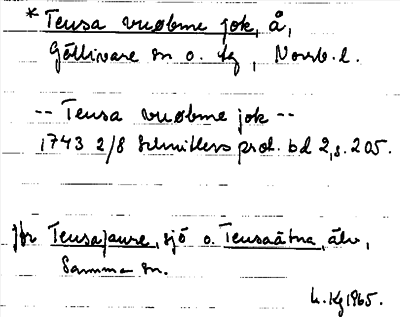 * Teusa vuobme jok, å,
Gällivare sn o. tg, Norrb. l.
-- Teusa vuobme jok --
1743 2/8 Schnitlers prot. bd 2, s. 205.
Jfr Teusajaure, sjö o. Teusaätna, älv,
Samma sn.
h. Kg 1965.